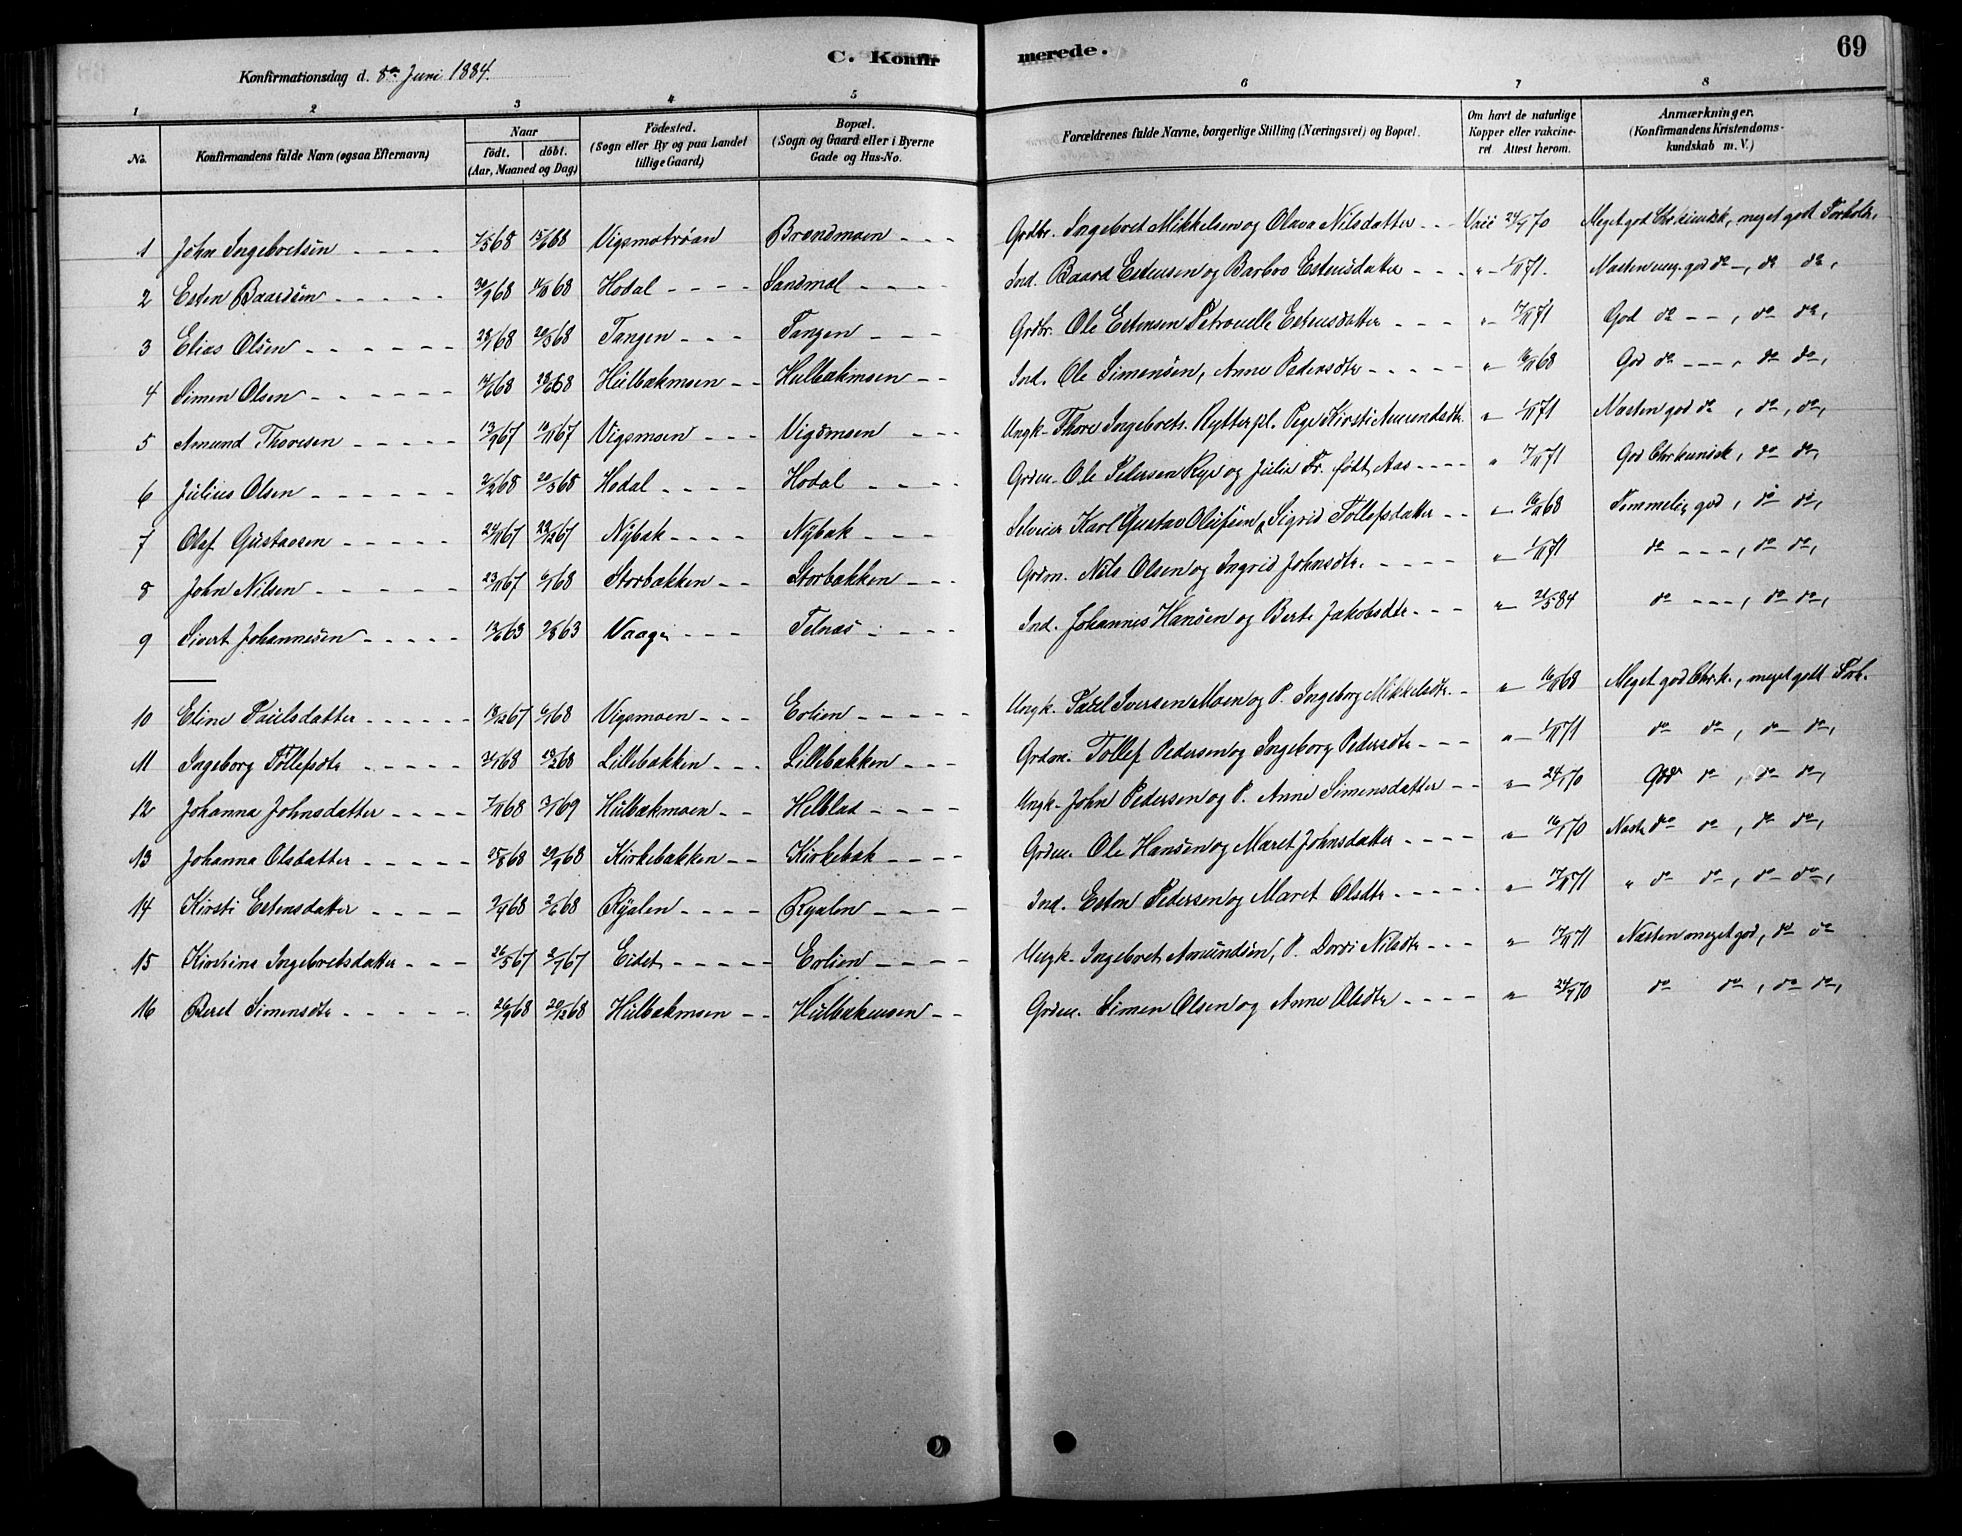 C. Konfirmerede.
69
Konfirmationsdag d. 8de Juni 1884.
1 2 3 4 5 6 7 8
No. Konfirmandens fulde Navn (ogsaa Efternavn) Naar født. døbt. (Aar, Maaned og Dag) Fødested. (Sogn eller By og paa Landet tillige Gaard) Bopæl. (Sogn og Gaard eller i Byerne Gade og Hus-No. Forældrenes fulde Navne, borgerlige Stilling (Næringsvei) og Bopæl. Om havt de naturlige Kopper eller vakcineret. Attest herom. Anmærkninger. (Konfirmandens Kristendomskundskab m. V.)
1 John Ingebretsen 68 15/6 68 Vigsmotrøan Brændmoen Grdbr. Ingebret Mikkelsen og Olava Nilsdatter 24/9 70 Meget god Chr.kundsk., meget god Forhold,
2 Esten Baardsen 30/9 68 68 Hodal Sandmæl Ind. Baard Estensen og Barbro Estensdatter " 1/11 71. Næsten meg. god do, do do,
3 Elias Olsen 68 20/5 68 Tangen Tangen Grdbr. Ole Estensen Petronelle Estensdatter " 17/11 71 God do, do do,
4 Simen Olsen 68 68 Hulbækmoen Hulbækmoen Ind. Ole Simensen, Anne Pedersdtr " 16/11 68 God do, do do,
5 Amund Thoresen 13/9 67 10/11 67 Vigsmoen Vigsmoen Ungk. Thore Ingebrets. Pige Kirsti Amundsdtr. " 1/11 71 Næsten god do, do, do,
6 Julius Olsen 2/2 68 20/5 68 Hodal Hodal Grdm. Ole Pedersen Rye og Julie Fr. født Aas " 17/11 71 God Chr.kundsk, do do,
7 Olaf Gustavsen 24/11 67 67 Nybak Nybak Selveier Karl Gustav Olufsen & Sigrid Tollefsdatter " 16/11 68 Temmelig god, do do,
8 John Nilsen 23/11 67 6/1 68 Storbækken Storbækken Grdm. Nils Olsen og Ingrid Johnsdtr. " 1/11 71 do, do do,
9 Sivert Johannesen 63 2/8 63 Vaage Telnæs Ind. Johannes Hansen og Berte Jakobsdtr " 21/5 84 do, do do,
10 Eline Paulsdatter 18/12 67 6/1 68 Vigsmoen Erlien Ungk. Paul Iversen Moen og P. Ingeborg Mikkelsdtr. " 16/11 68 Meget god Chr.k., meget godt Forh.
11 Ingeborg Tollefsdtr 68 68 Lillebækken Lillebækken Grdm. Tollef Pedersen og Ingeborg Pedersdtr " 1/11 71 do do, do do,
12 Johanna Johnsdatter 7/11 68 3/1 69 Hulbækmoen Helblad Ungk. John Pedersen og P. Anne Simensdatter " 70 God do, do do,
13 Johanna Olsdatter 25/8 68 20/9 68 Kirkebækken Kirkebæk Grdm. Ole Hansen og Maret Johnsdatter " 70 do do, do do,
14 Kirsti Estensdatter 68 68 Ryalen Ryalen Ind. Esten Pedersen og Maret Olsdtr " 17/11 71 " do do, do do,
15 Kirstine Ingebretsdatter 26/5 67 67 Eidet Erlien Ungk. Ingebret Amundsen, P. Dordi Nilsdtr " 17/11 71 Næsten meget god, do do
16 Beret Simensdtr 26/9 68 20/12 68 Hulbækmoen Hulbækmoen Grdm. Simen Olsen og Anne Olsdtr " 70 do do, do do,